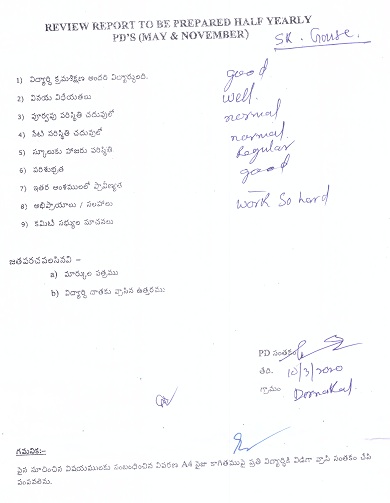 REVIEW REPORT TO BE PREPARED HALF YEARLY
PD'S (MAY & NOVEMBER)
SK. Gouse.
1) విద్యార్థి క్రమశిక్షణ అందరి విద్యార్థులది. good
2) వినయ విధేయతలు well.
3) పూర్వపు పరిస్థితి చదువులో normal
4) నేటి పరిస్థితి చదువులో normal
5) స్కూలుకు హాజరు పరిస్థితి Regular
6) పరిశుభ్రత good
7) ఇతర అంశములలో ప్రావీణ్యత
8) అభిప్రాయాలు / సలహాలు work So hard
9) కమిటీ సభ్యుల సూచనలు
జతపరచవలసినవి –
a) మార్కుల పత్రము
b) విద్యార్థి దాతకు వ్రాసిన ఉత్తరము
PD సంతకం
తేది. 10/3/2020
గ్రామం Dornakal
గమనిక:–
పైన సూచించిన విషయములకు సంబంధించిన వివరణ A4 సైజు కాగితముపై ప్రతి విద్యార్థికి విడిగా వ్రాసి సంతకం చేసి
పంపవలెను.